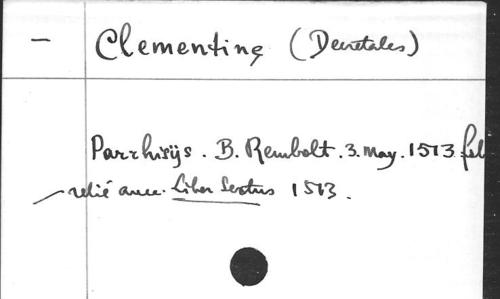 — Clementine (Decretales)
Parrhisijs. B. Rembolt. 3. may. 1513. fol
relié avec Liber Sextus 1513.